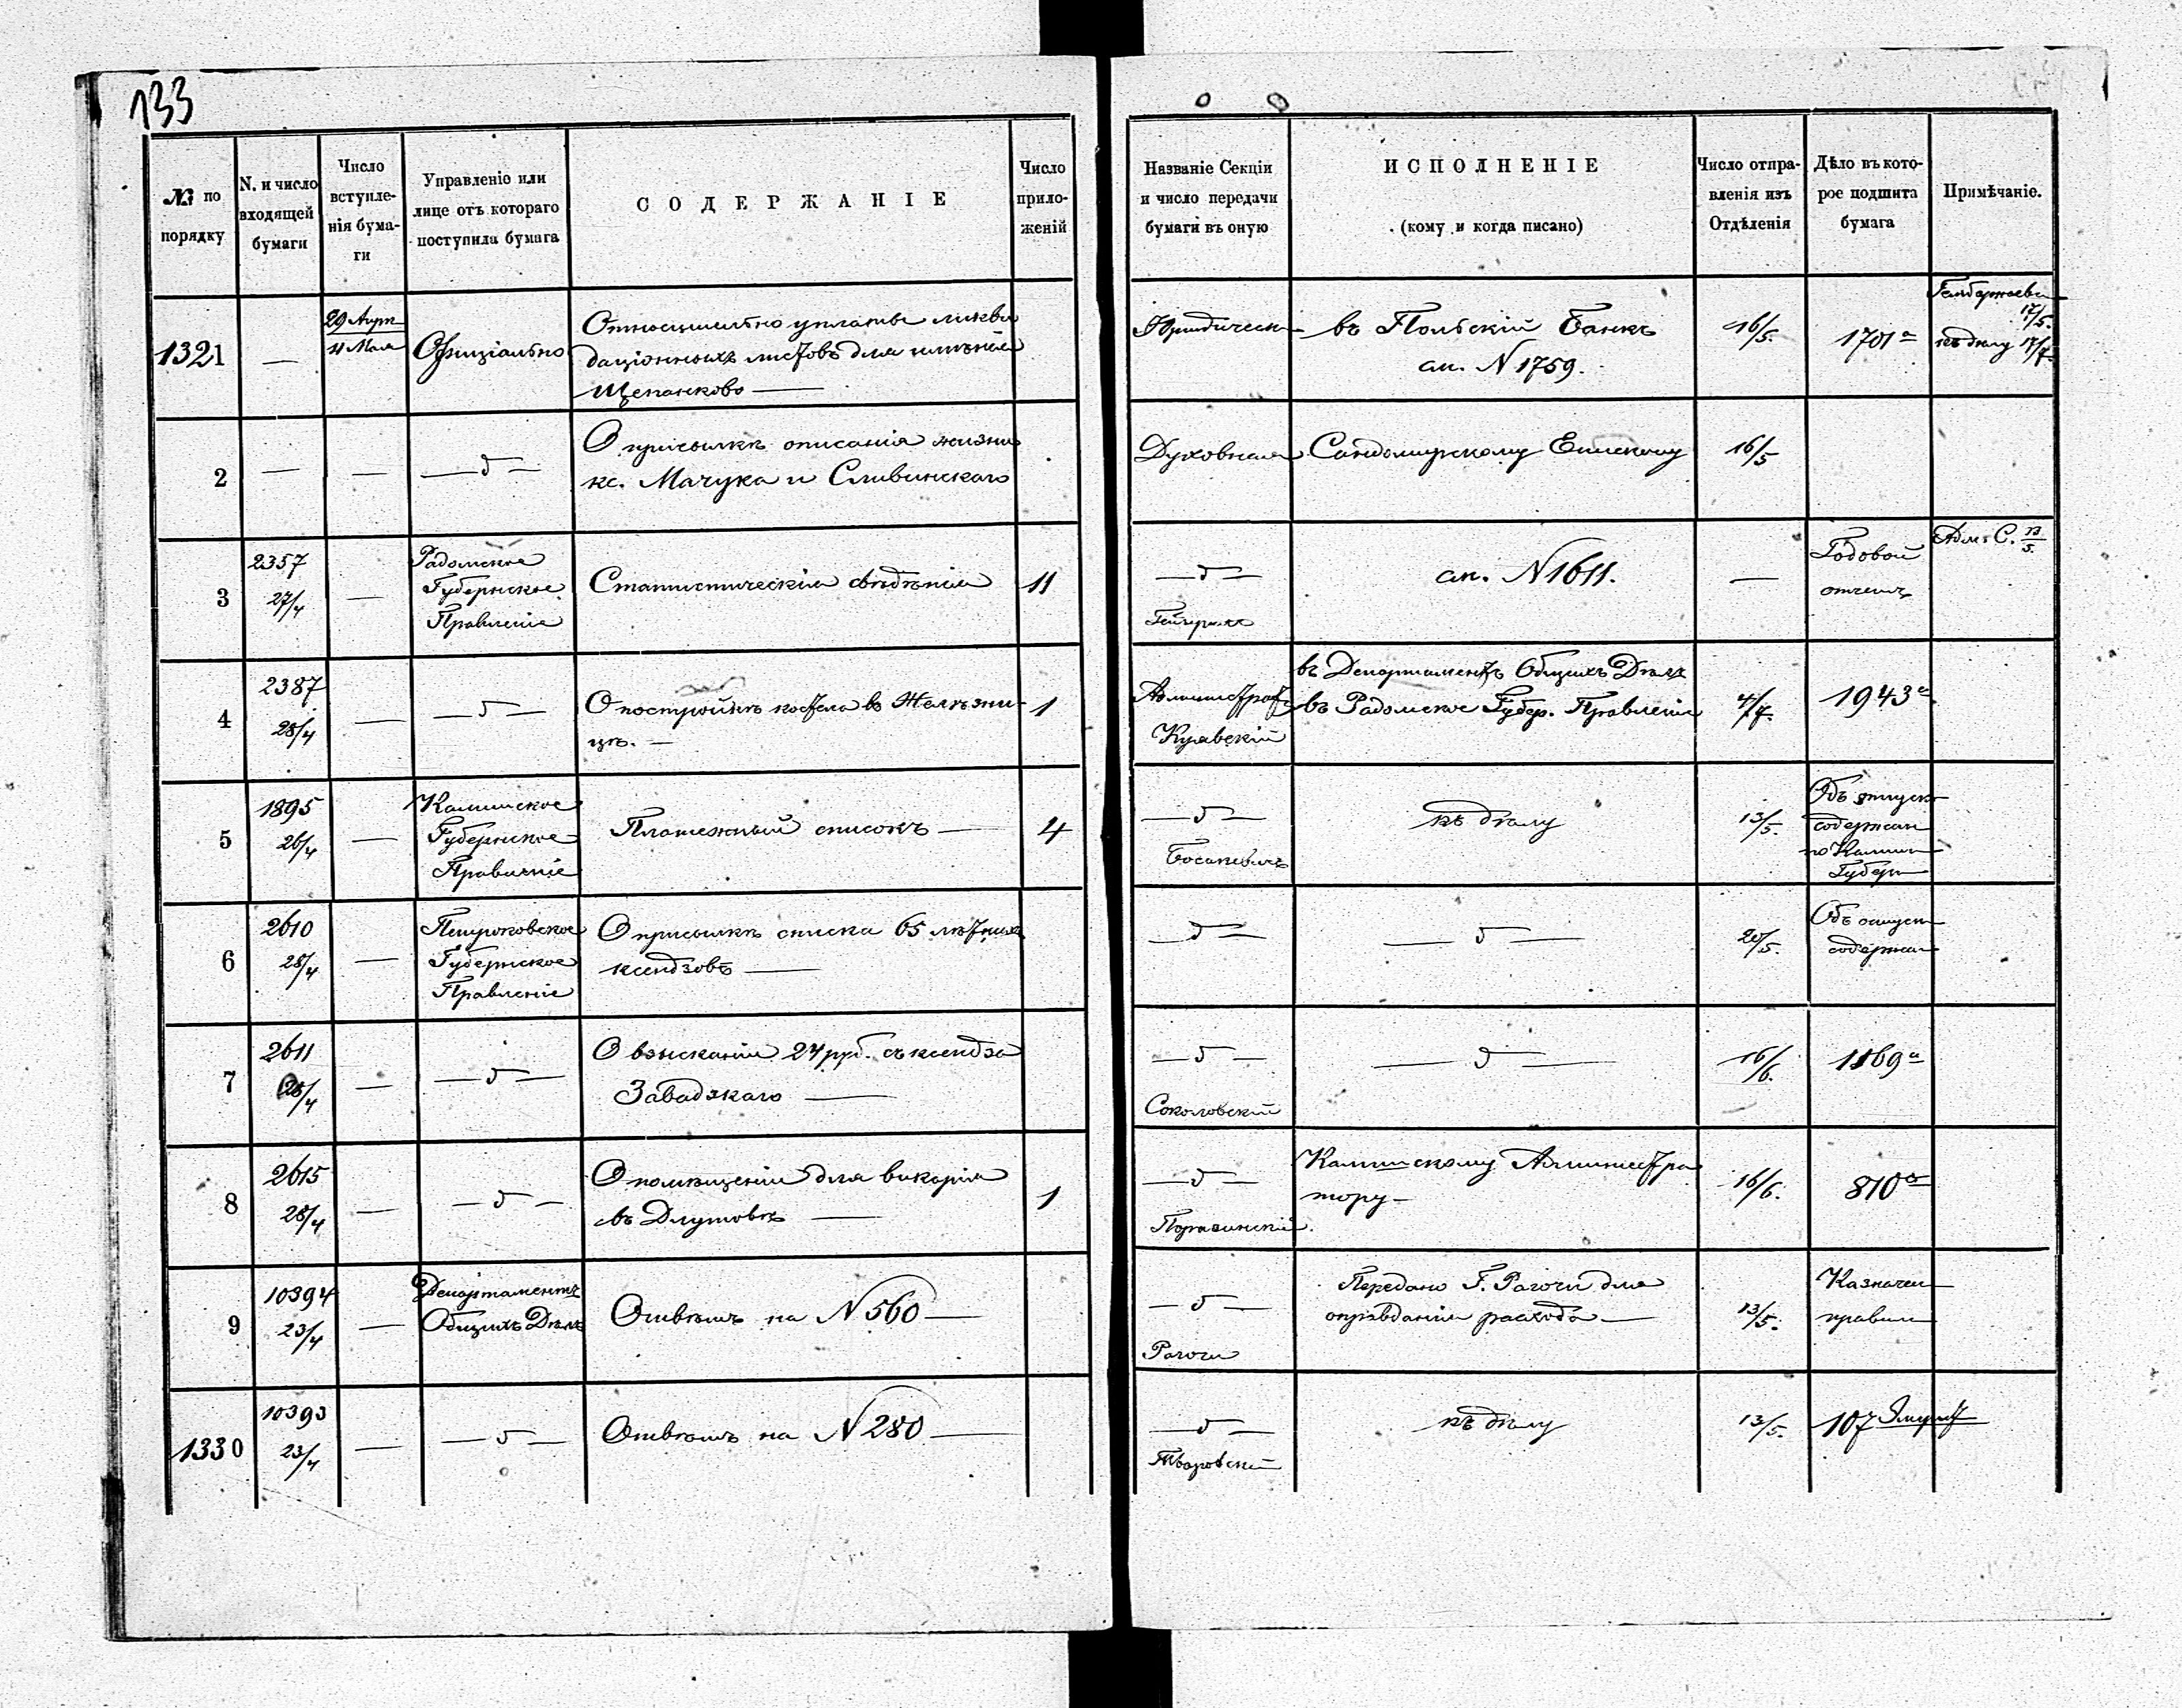 133
№ по
порядку
N. и число
входящей
бумаги
Число
вступле-
нія бума-
ги
Управленіо или
лице отъ котораго
поступила бумага
СОДЕРЖАНІЕ
Число
прило-
женій
Названіе Секціи
и число передачи
бумаги въ оную
ИСПОЛНЕНІЕ
(кому и когда писано)
Число отпра-
вленія изъ
Отдѣленія
Дѣло въ кото-
рое подшита
бумага
Примѣчаніе.
1321
—
29 Апр
11 Мая
Офиціально
Относительно уплаты ликви
даціонныхъ листовъ для имѣнія
Щепанково —
Юридическ
въ Польскій Банкъ
сн. N 1759.
16/5.
1701 а
17/5.
къ дѣлу 17/7.
2
—
—
— д —
О присылкѣ описанія жизни
кс. Мачука и Сливинскаго
Духовная
Сандомирскому Епискому
16/5
3
2357
27/4
—
Радомское
Губернское
Правленіе
Статистическія свѣдѣнія
11
— д —
сн. N 1611.
—
Годовой
отчетъ
Адм. С. 13/5.
4
2387
28/4
—
— д —
О постройкѣ костела въ Желѣзни-
цѣ. —
1
Администрат
Куявскій
въ Департаментъ Общихъ Дѣлъ
въ Радомское Губер. Правленіе
4/7.
1943 а
5
1895
26/4
—
Калишское
Губернское
Правленіе
Платежный списокъ —
4
— д —
къ дѣлу
13/5.
Объ отпуск
содержан
по Калиш
Губерн
6
2610
28/4
—
Петроковское
Губернское
Правленіе
О присылкѣ списка 65 лѣтнихъ
ксендзовъ —
— д —
— д —
20/5.
Объ отпуск
содержан
7
2611
28/4
—
— д —
О взысканіи 24 руб. съ ксендза
Завадзкаго —
— д —
Соколовскій
— д —
16/6.
1169 а
8
2615
28/4
—
— д —
О помѣщеніи для викарія
въ Длутовѣ —
1
— д —
Калишскому Администра
тору —
16/6.
810 а
9
10394
23/4
—
Департаментъ
Общихъ Дѣлъ
Отвѣтъ на N 560 —
— д —
Рагочи
Передано Г. Рагочи для
оправданія расхода —
13/5.
Казначей
правил
1330
10393
23/4
—
— д —
Отвѣтъ на N 280 —
— д —
Творовскій
къ дѣлу
13/5.
107 Эмерит